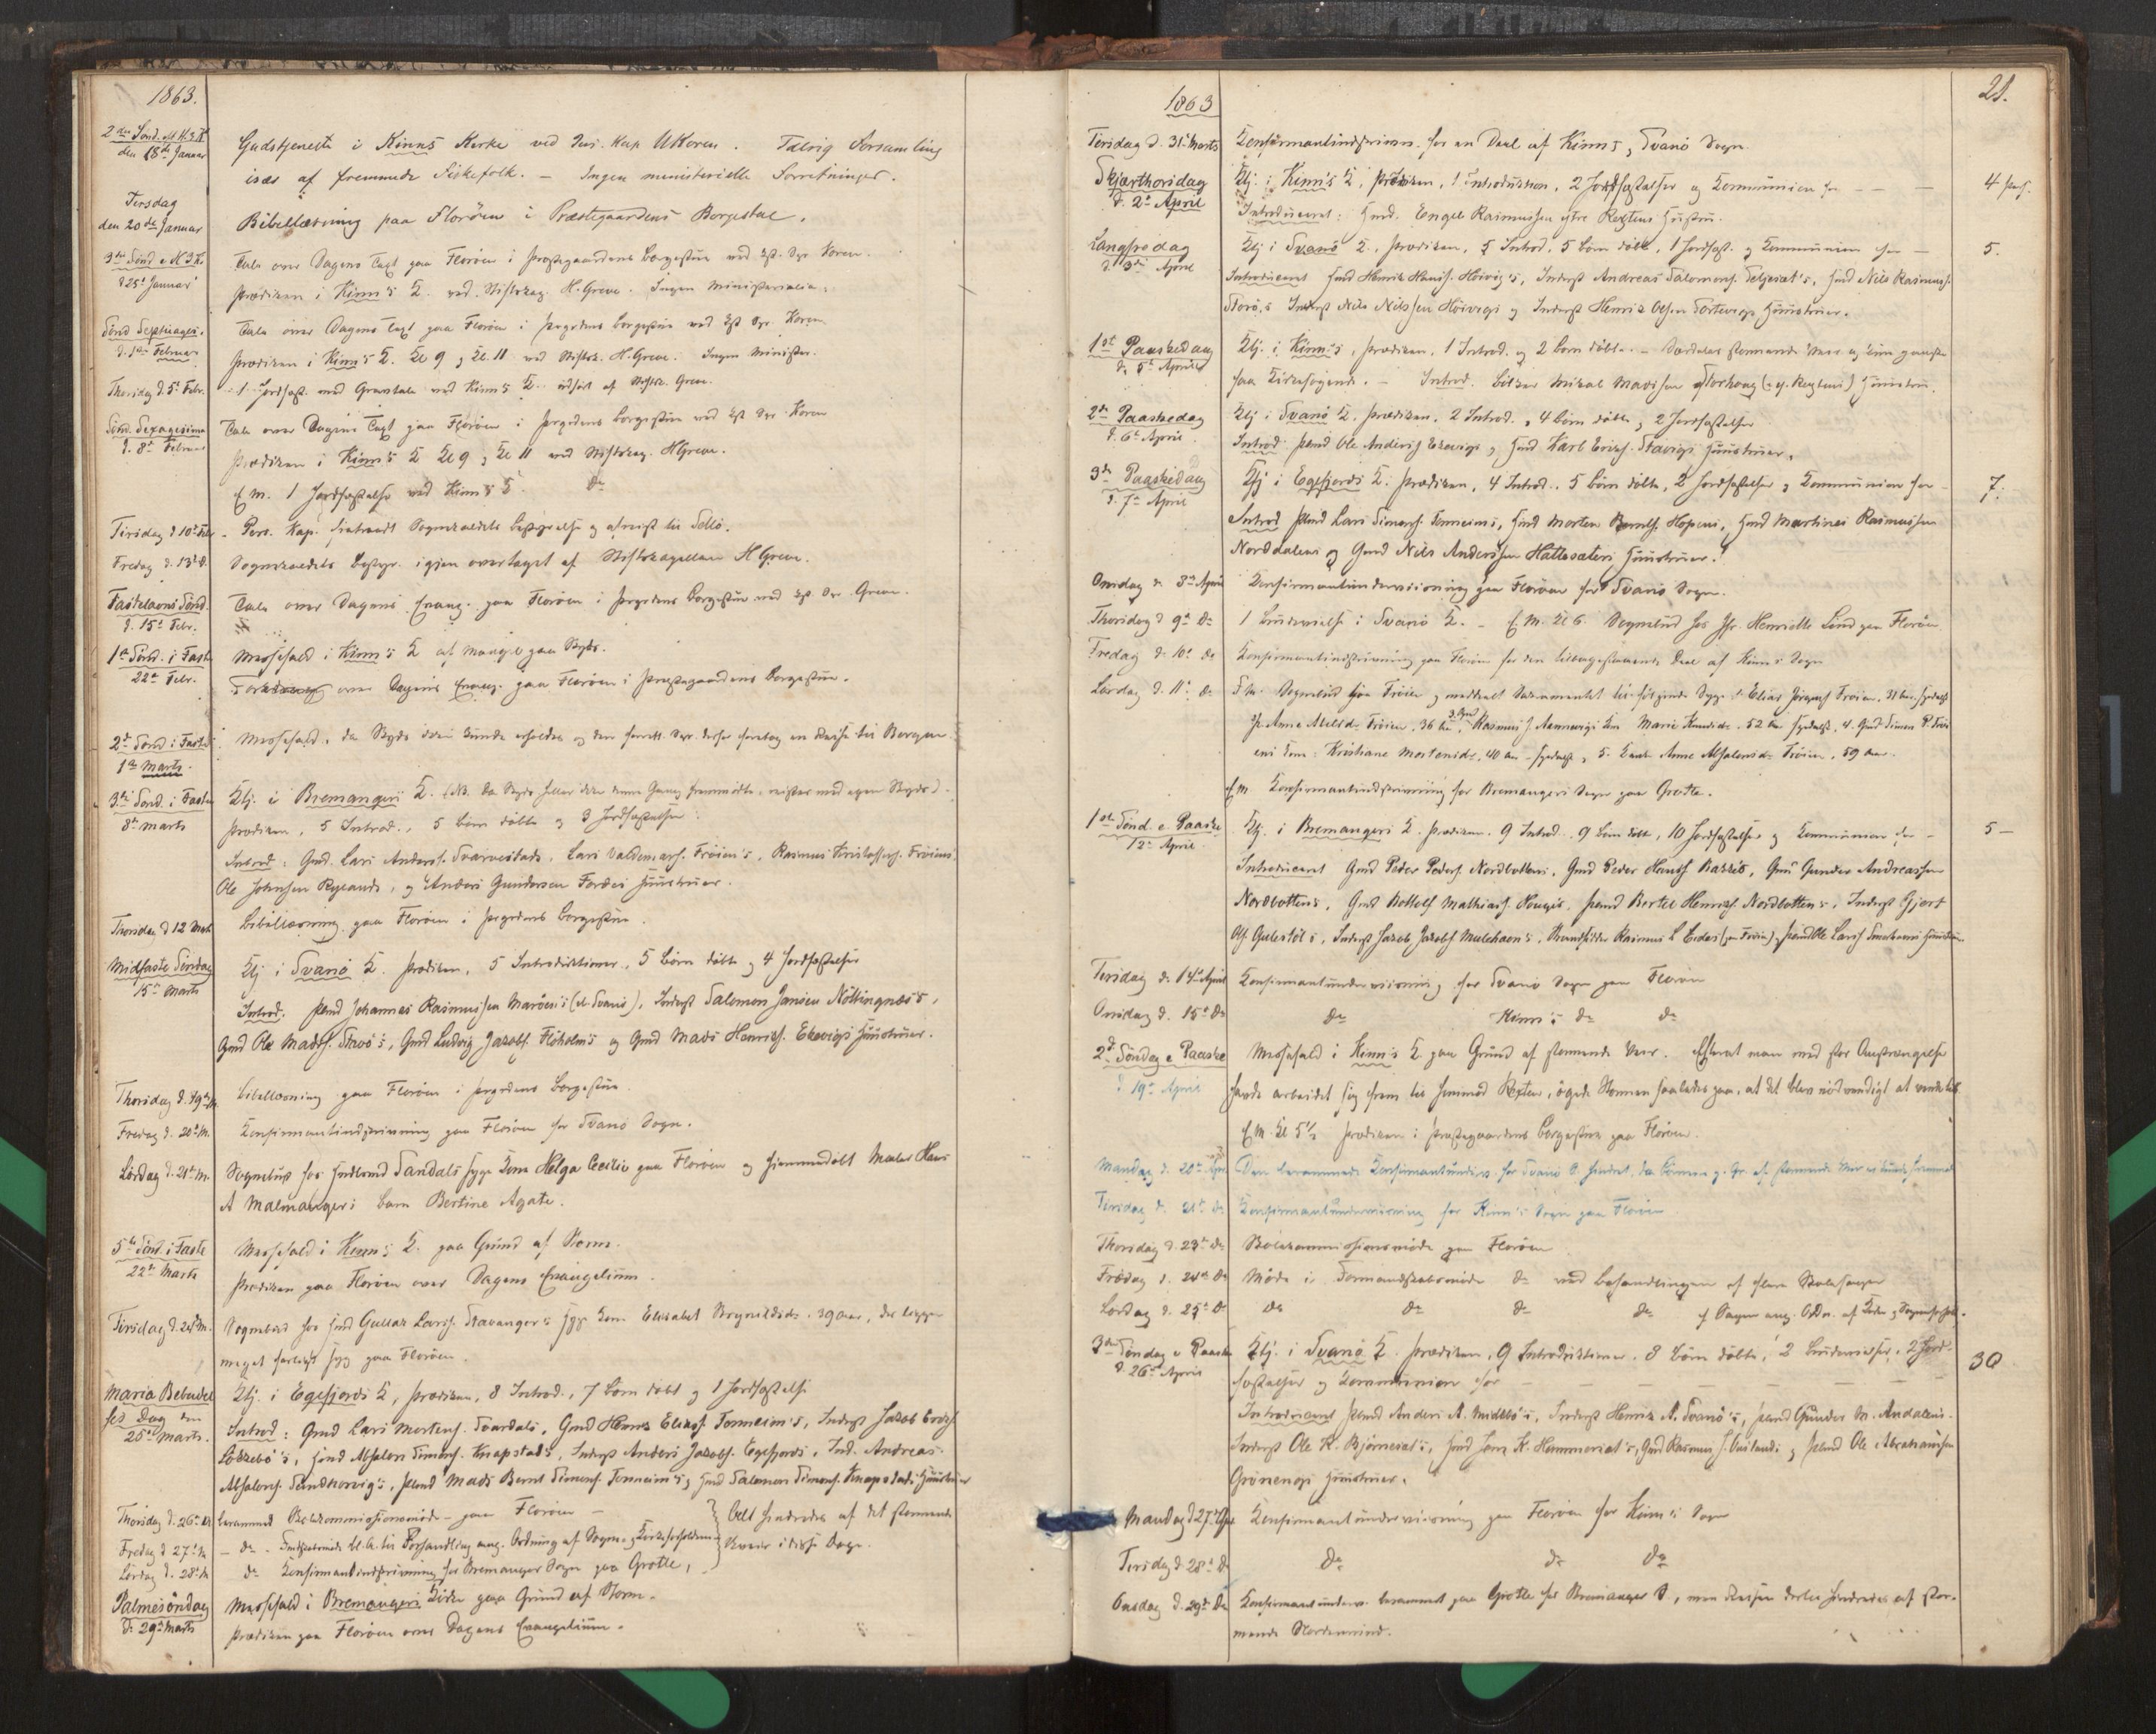 1863.
2den Sönd. e. H. 3 K.
den 18de Januar
Gudstjeneste i Kinns Kirke ved Pers. Kap. UKoren. Talrig Forsamling
især af fremmede Fiskefolk. — Ingen ministerielle Forretninger.
Tirsdag
den 20de Januar
Bibellæsning paa Florøen i Præstegaardens Borgestue.
3die Sönd e H 3 K.
d 25de Januar
Tale over Dagens Text paa Florøen i Præstegaardens Borgestue ved Koren.
Prædiken i Kinn's K. ved Stiftskap. H. Greve. Ingen Ministerialia.
Sönd Septuages.
d. 1ste Februar
Tale over Dagens Text paa Florøen i Borgestue ved Koren
Prædiken i Kinn's K. Kl 9 og Kl. 11 ved Stiftsk. H. Greve. Ingen Minister.
Thorsdag d 5te Febr.
1 Jordfæst. med Gravtale ved Kinn's K. udført af Stiftsk. Greve.
Sönd. Sexagesima
d. 8de Februar
Tale over Dagens Text paa Florøen i Borgestue ved Koren
Prædiken i Kinn's K Kl 9 og Kl 11 ved Stiftskap. H Greve.
E. m. 1 Jordfæstelse ved Kinn's K. do
Tirsdag d 10de Febr.
Pers. Kap. fratraadt Sognekaldets Bestyrelse og afreist til Selló.
Fredag d. 13de
Sognekaldets Bestyr. igjen overtaget af Stiftskapellan H Greve.
Fastelavns Sönd.
d. 15de Febr.
Tale over Dagens Evang. paa Florøen i Borgestue ved Greve.
1ste Sönd. i Faste
22de Febr.
Messefald i Kinn's K af Mangel paa Skyds.
over Dagens Evang. paa Florøen i Præstegaardens Borgestue.
2den Sönd i Faste
1ste Marts.
Messefald, da Skyds ikke kunde erholdes og en Reise til Bergen
3die Sönd. i Faste
8de Marts
Ktj. i Bremangers K. (NB. Da Skyds heller ikke denne Gang fremmødte, reistes med egen Skyds).
Prædiken, 5 Introd., 5 Børn døbte og 3 Jordfæstelser.
Introd: Gmd. Lars Anders. Svarvestads, Lars Valdemars. Frøien's, Rasmus Kristoffers. Frøiens,
Ole Johnsen Rylands, og Anders Gundersen Fordes Huustruer.
Thorsdag d 12 Mrts
Bibellæsning paa Florøen i Borgestue.
Midfaste Söndag
15de Marts
Ktj i Svanö K. Prædiken, 5 Introduktioner, 5 Børn døbte og 4 Jordfæstelser
Introd. Plmd Johannes Rasmussen Marøens (el. Svanö), Inderst Salomon Jansen Nöttingnæs's,
Gmd Ole Mads. Stavö's, Gmd Ludvig Jakobs. Flöholm's og Gmd Mads Henriks. Ekevigs Huustruer.
Thorsdag d. 19de M.
Bibellæsning paa Florøen i Borgestue
Fredag d. 20de M.
Konfirmantindskrivning paa Florøen for Svanö Sogn.
Lördag d. 21de M.
Sognebud hos Sandals syge Kone Helga Cecilie paa Florøen og hjemmedøbt Maler Hans
A Malmangers Barn Bertine Agate.
5te Sönd. i Faste
22de Marts
Messefald i Kinn's K. paa Grund af Storm.
Prædiken paa Florøen over Dagens Evangelium.
Tirsdag d. 24de M.
Sognebud hos Gullak Lars. Stavangers syge Kone Elisabet Brynildsdr. 39 Aar, der ligger
meget farligt syg paa Florøen.
Maria Bebudel
ses Dag den
25de Marts.
Ktj. i Egefjords K, Prædiken, 8 Introd., 7 Børn døbt og 1 Jordfæstelse
Introd: Gmd Lars Mortens. Svardals, Gmd Elias. Tonneim's, Inderst Jakob
Lökkebö's, Absalon Simons. Knapstad's, Inderst Anders Jakobs. Egefjords, Ind. Andreas
Absalons. Sundhovig's, Plmd Mads Bernt Simons. Tonneim's og Salomon Simons. Knapstads Huustruer
Thorsdag d. 26de M.
berammet Skolekommissionsmøde paa Florøen —
Fredag d 27de M
— do — til Forhandling ang. Ordning af Sogne- og Kirkeforholdene
Lördag d. 28de M
do Konfirmantindskrivning for Bremanger Sogn paa Grotle,
helt hindredes af det stormende
Veir i disse Dage.
Palmesöndag
d. 29de Marts
Messefald i Bremangers Kirke paa Grund af Storm.
Prædiken paa Florøen over Dagens Evangelium.
1863
21.
Tirsdag d. 31te Marts
Konfirmantindskrivn. for en Deel af Kinn's og Svanö Sogn.
Skjærthorsdag
d. 2den April
Ktj. i Kinn's K, Prædiken, 1 Introduktion, 2 Jordfæstelser og Kommunion for — — 4 Pers.
Introduceret: Engel Rasmussen ytre Rextens Hustru.
Langfredag
d 3die April
Ktj i Svanö K., Prædiken, 5 Introd., 5 Børn døbte, 1 Jordfæst. og Kommunion for — 5.
Introduceret Henrik Hans. Höivig's, Inderst Andreas Salomons. Seljeset's, Nils Rasmuss.
Storö's, Inderst Nils Nilssen Höivigs og Inderst Henrik Olsen Sörtevigs Huustruer.
1ste Paaskedag
d. 5te April
Ktj. i Kinn's, Prædiken, 1 Introd. og 2 Børn døbte. — stormende Veir og kun ganske
faa Kirkesøgende. — Introd. Mikal Madssen Storhaug (: y. Rextens) Huustru.
2den Paaskedag
d. 6te April.
Ktj i Svanö K. Prædiken, 2 Introd., 4 Børn døbte og 2 Jordfæstelser
Introd. Plmd Ole Anders. Ekevigs og Karl Eriks. Stavigs Huustruer.
3die Paaskedag
d. 7de April
Ktj i Egefjords K. Prædiken, 4 Introd., 5 Børn døbte, 2 Jordfæstelser og Kommunion for — 7.
Introd Plmd Lars Simons. Tonneims, Morten Bernts. Hopens, Martines Rasmussen
Norddalens og Gmd Nils Anderssen Hattesæters Huustruer.
Onsdag d. 8de April
Konfirmantunderviisning paa Florøen for Svanö Sogn.
Thorsdag d 9de do
1 Brudevielse i Svanö K. — E. M. Kl 6. Sognebud hos Henriette Lund paa Florøen
Fredag d. 10de do
Konfirmantindskrivning paa Florøen for den tilbagestaaende Deel af Kinn's Sogn
Lørdag d. 11te do
F. M. Sognebud paa Frøien og meddeelt Sakramentet til følgende Syge: 1. Elias Frøien, 31 Aar,
Anne Abelsdr Frøien, 36 Aar, 3. Rasmus J. Marie Knudsdr. 52 Aar 4. Simon P. Frøi
ens Kone: Kristiane Mortensdr, 40 Aar og 5. Enke Anne Absalonsdr Frøien, 59 Aar.
E. M Konfirmantindskrivning for Bremangers Sogn paa Grotle.
1ste Sönd. e. Paaske
12te April
Ktj. i Bremangers K. Prædiken, 9 Introd., 9 Børn døbt, 10 Jordfæstelser og Kommunion for — 5 —
Introduceret Gmd Peder Peders. Nordbottens, Gmd Peder Gunder Andreassen
Nordbottens, Gmd Botolf Mathias. Plmd Bertel Henriks. Nordbottens, Inderst Gjert
Ol. Gulestöl's, Inderst Jakob Jakobs. Rasmus L Huustruer
Tirsdag d. 14de April
Konfirmantunderviisning for Svanö Sogn paa Florøen
Onsdag d. 15de do
do Kinn's do do
2den Söndag e Paaske
d 19de April
Messefald i Kinn's K. paa Grund af stormende Veir. Efterat man med stor Anstrængelse
havde arbeidet sig frem til henimod Rexten, øgede Stormen saaledes paa, at det blev nødvendigt at vende tilb.
E. M. Kl 5½ Prædiken i Præstegaardens Borgestue paa Florøen.
Mandag d. 20de Apr.
Den berammede Konfirmantunderv. for Svanö S. hindret, da Børnene p. Gr. af stormende Veir ei kunde
Tirsdag d. 21de do
Konfirmantunderviisning for Kinn's Sogn paa Florøen
Thorsdag d. 23de do
Skolekommissionsmøde paa Florøen
Fredag d. 24de do
Møde i Formandskabsmøde do ved Behandlingen af flere Skolesager
Lørdag d. 25de do
do do do do af Sagen ang. Ordn. af Kirke- og Sogneforhold.
3die Søndag e Paaske
d 26de April
Ktj. i Svanö K. Prædiken, 9 Introduktioner, 8 Børn døbte, 2 Brudevielser, 2 Jord-
fæstelser og Kommunion for — — — — 30
Introduceret Plmd Anders A. Midtbö's, Inderst Henrik A. Svanö's, Plmd Gunder M. Andalens.
Inderst Ole K. Bjørneset's, K. Hammerset's, Gmd Rasmus og Plmd Ole Abrahamsen
Grönenops Huustruer.
Mandag d 27de Apr.
Konfirmantunderviisning paa Florøen for Kinn's Sogn
Tirsdag d. 28de do
do do do
Onsdag d. 29de do
Konfirmantunderv. berammet paa Grotle for Bremanger S., men Reisen dertil hindredes af stor-
mende Nordenvind.